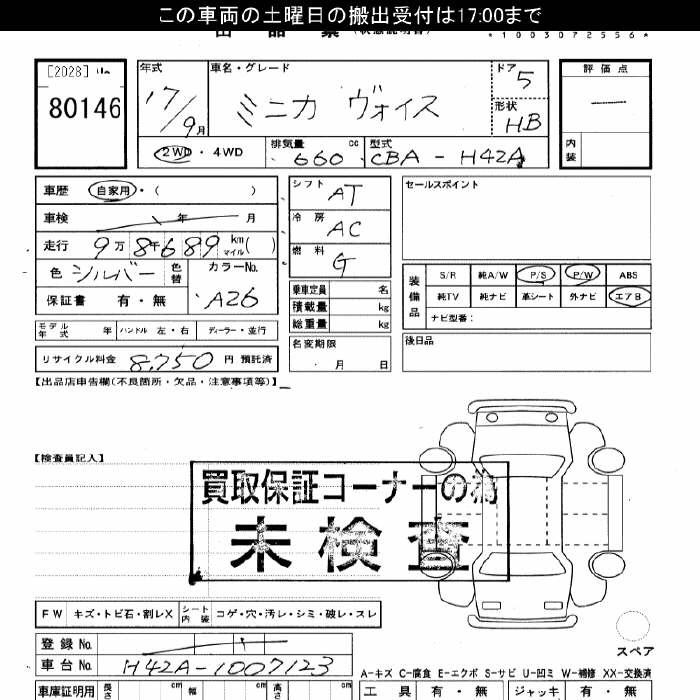 この車両の土曜日の搬出受付は17:00まで
*1003072556*
[2028]
80146
年式
17/9月
車名・グレード
ミニカ ヴォイス
ドア
5
形状
HB
評価点
内装
2WD・4WD
排気量 660 cc
型式 CBA-H42A
車歴 自家用・( )
車検 年 月
走行 9万8千689 km マイル( )
色 シルバー 色替
カラーNo. A26
保証書 有・無
シフト AT
冷房 AC
燃料 G
乗車定員 名
積載量 kg
総重量 kg
名変期限
月 日
セールスポイント
装備品
S/R 純A/W P/S P/W ABS
純TV 純ナビ 革シート 外ナビ エアB
ナビ型番:
後日品
モデル年式 年 ハンドル 左・右 ディーラー・並行
リサイクル料金 8,750 円 預託済
【出品店申告欄(不良箇所・欠品・注意事項等)】
【検査員記入】
買取保証コーナーの為
未検査
FW キズ・トビ石・割レX シート内装 コゲ・穴・汚レ・シミ・破レ・スレ
登録No.
車台No. H42A-1007123
スペア
A-キズ C-腐食 E-エクボ S-サビ U-凹ミ W-補修 XX-交換済
車庫証明用 長さ cm 幅 cm 高さ cm
工具 有・無 ジャッキ 有・無